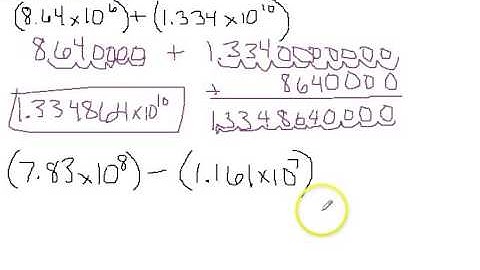 (8.64×10⁶)+(1.334×10¹⁰)
8.640000 + 1.3340000000
+ 8640000
1.334864×10¹⁰ 1.3348640000
(7.83×10⁸) − (1.161×10⁷)